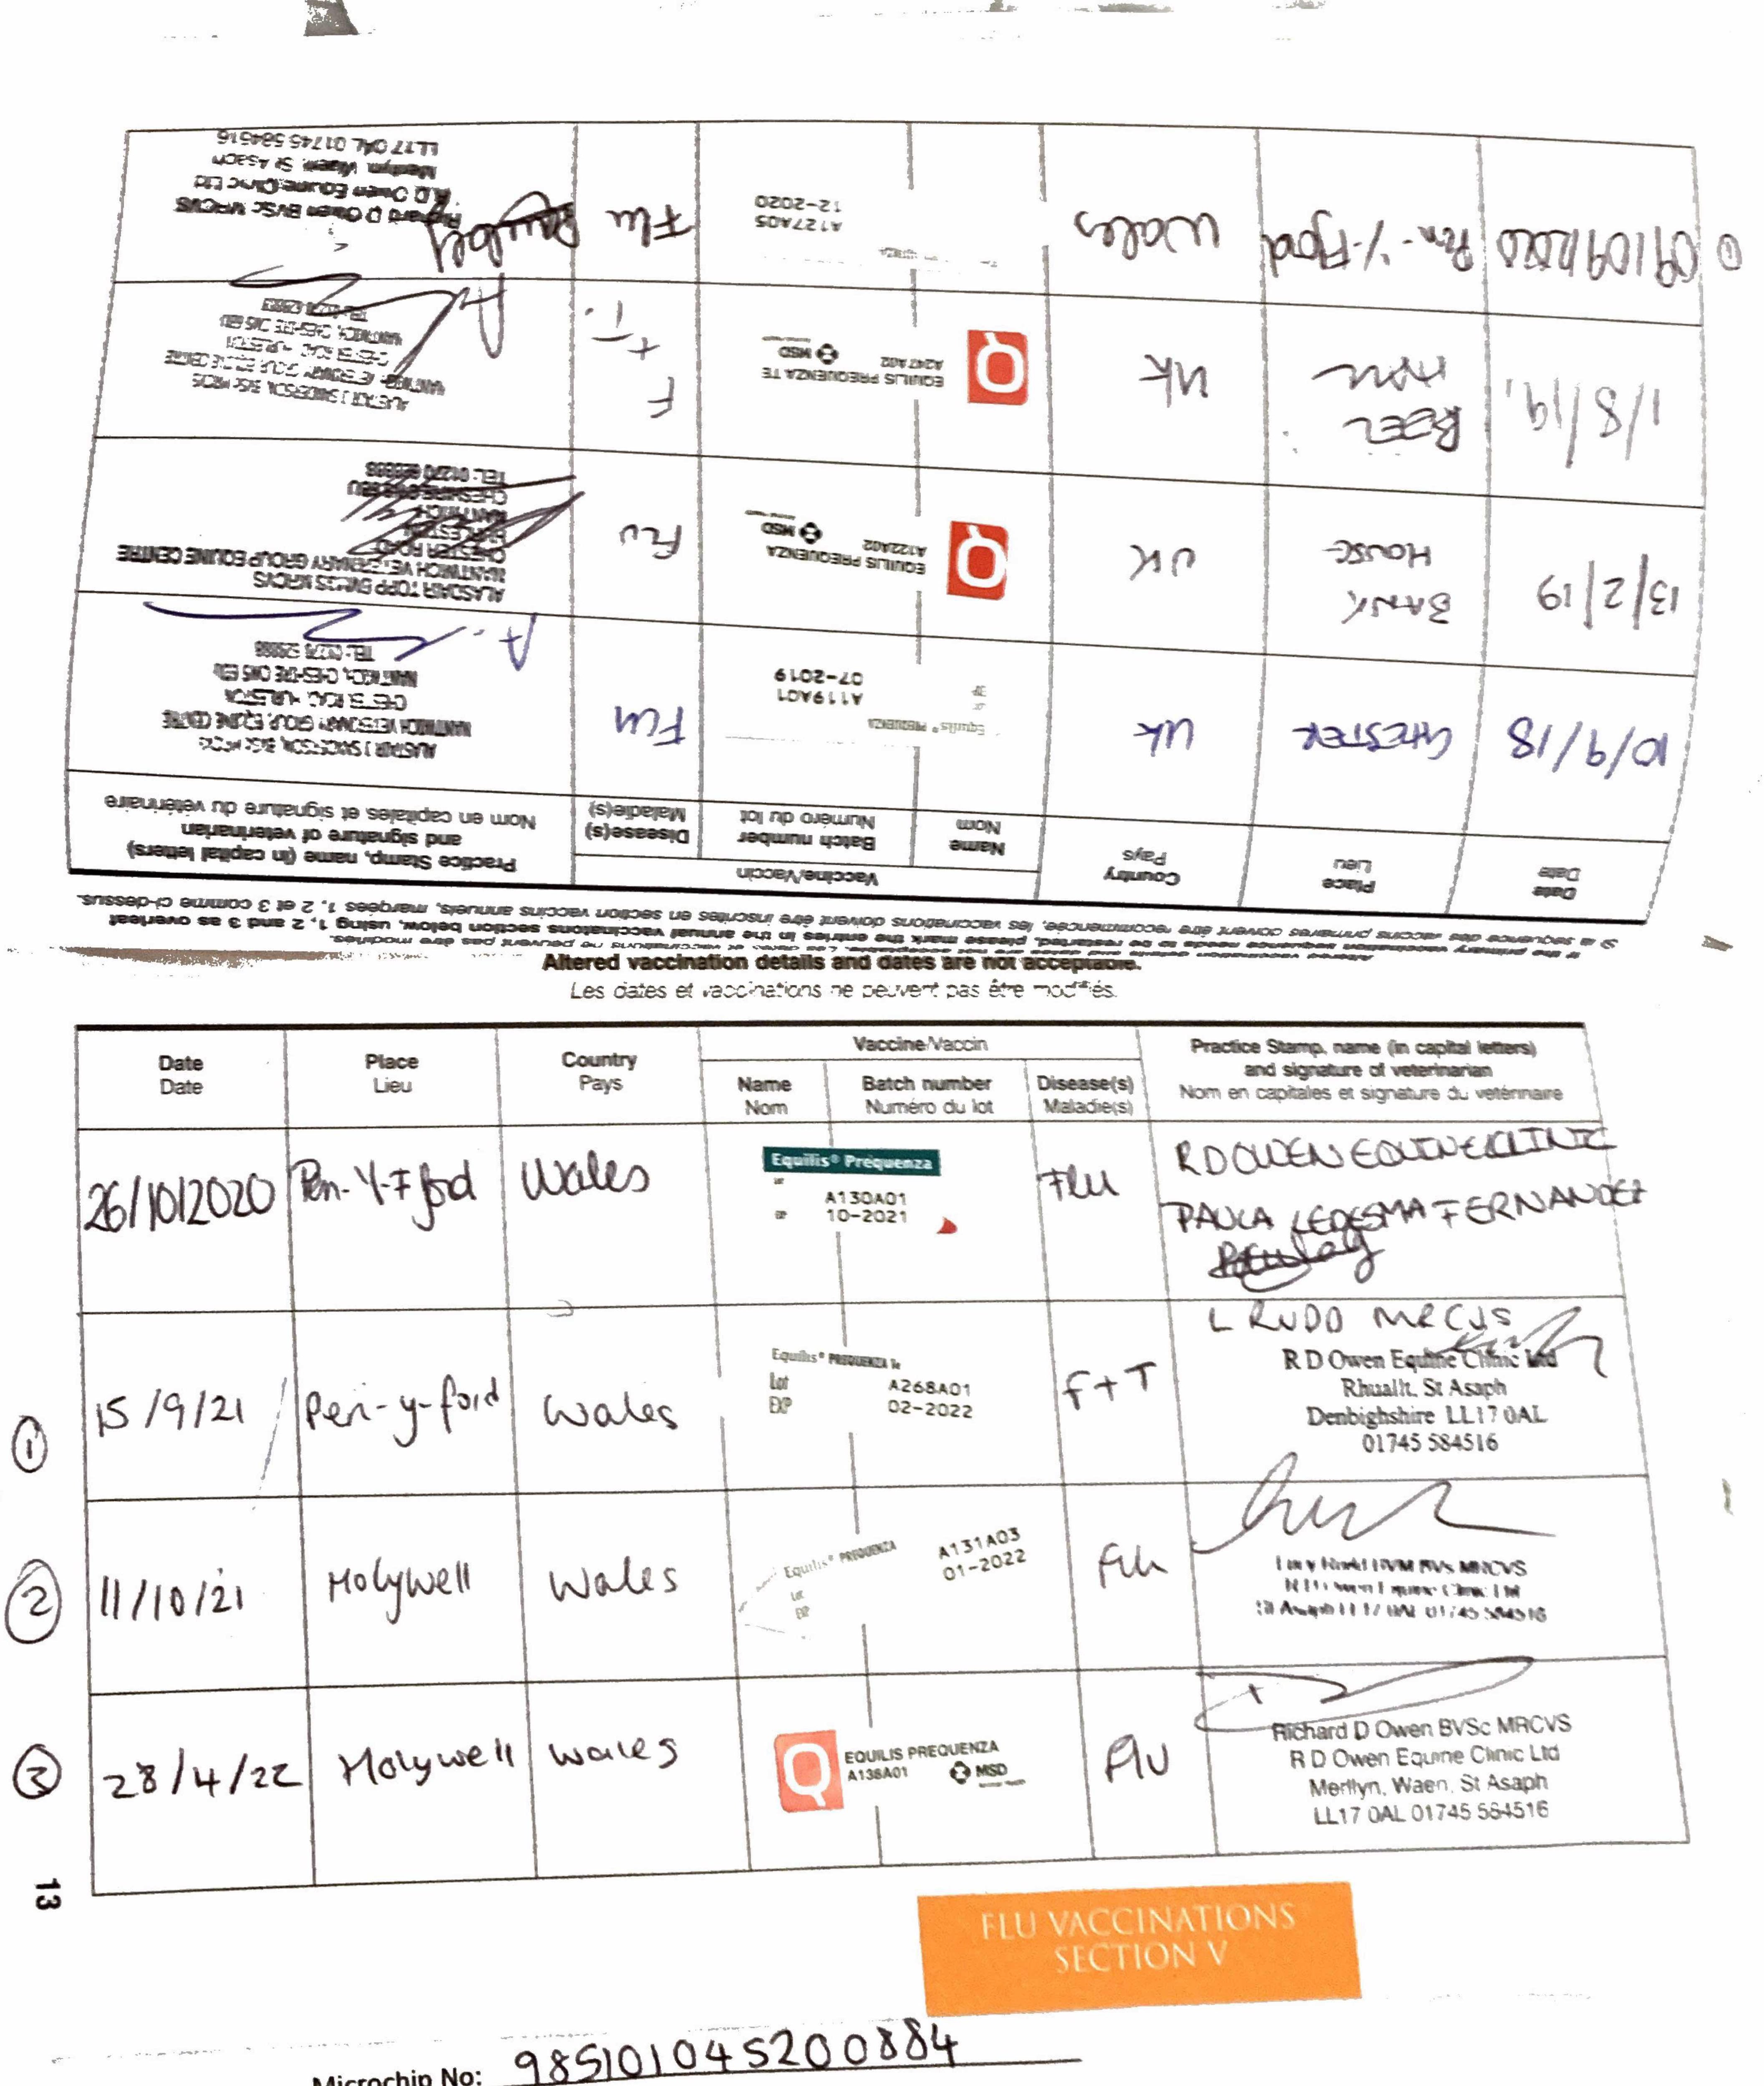 If the primary vaccination sequence needs to be restarted, please mark the entries in the annual vaccinations section below, using 1, 2 and 3 as overleaf
Si la séquence des vaccins primaires doivent être recommencée, les vaccinations doivent être inscrites en section vaccins annuels, marqées 1, 2 et 3 comme ci-dessus.
Date
Date
Place
Lieu
Country
Pays
Vaccine/Vaccin
Name
Nom
Batch number
Numéro du lot
Disease(s)
Maladie(s)
Practice Stamp, name (in capital letters)
and signature of veterinarian
Nom en capitales et signature du vétérinaire
10/9/18
CHESTER
UK
Equilis® PREQUENZA
A119A01
07-2019
Flu
ALASTAIR J SANDERSON, BVSc MRCVS
NANTWICH VETERINARY GROUP, EQUINE CENTRE
CHESTER ROAD, HURLESTON
NANTWICH, CHESHIRE CW5 6BU
13/2/19
BANK
HOUSE
UK
EQUILIS PREQUENZA
A122A02
MSD
FLU
ALASDAIR TOPP BVMS MRCVS
NANTWICH VETERINARY GROUP EQUINE CENTRE
CHESTER ROAD
HURLESTON
NANTWICH
TEL:
1/8/19
UK
EQUILIS PREQUENZA TE
A247A02
MSD
F
+ T.
ALASTAIR J SANDERSON, BVSc MRCVS
NANTWICH VETERINARY GROUP, EQUINE CENTRE
CHESTER ROAD, HURLESTON
NANTWICH, CHESHIRE CW5 6BU
① 09/09/2020
Pen-Y-Fford
Wales
A127A05
12-2020
Flu
Richard D Owen BVSc MRCVS
R D Owen Equine Clinic Ltd
Merllyn, Waen, St Asaph
LL17 0AL 01745 584516
Altered vaccination details and dates are not acceptable.
Les dates et vaccinations ne peuvent pas être modifiés.
Date
Date
Place
Lieu
Country
Pays
Vaccine/Vaccin
Name
Nom
Batch number
Numéro du lot
Disease(s)
Maladie(s)
Practice Stamp, name (in capital letters)
and signature of veterinarian
Nom en capitales et signature du vetérinaire
26/10/2020
Pen-Y-Ffod
Wales
Equilis® Prequenza
A130A01
10-2021
Flu
R D OWEN EQUINE CLINIC
PAULA LEDESMA FERNANDEZ
①
15/9/21
Pen-y-ford
Wales
Equilis® PREQUENZA Te
Lot A268A01
EXP 02-2022
F+T
L RUDD MRCVS
R D Owen Equine Clinic Ltd
Rhuallt, St Asaph
Denbighshire LL17 0AL
01745 584516
②
11/10/21
Holywell
Wales
Equilis® PREQUENZA
A131A03
01-2022
Flu
MRCVS
③
28/4/22
Holywell
Wales
EQUILIS PREQUENZA
A138A01
MSD
Flu
Richard D Owen BVSc MRCVS
R D Owen Equine Clinic Ltd
Merllyn, Waen, St Asaph
LL17 0AL 01745 584516
13
FLU VACCINATIONS
SECTION V
Microchip No: 985101045200884